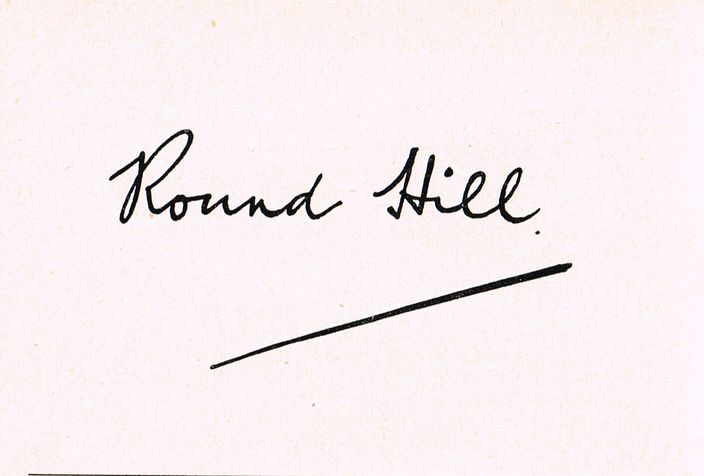 Round Hill.